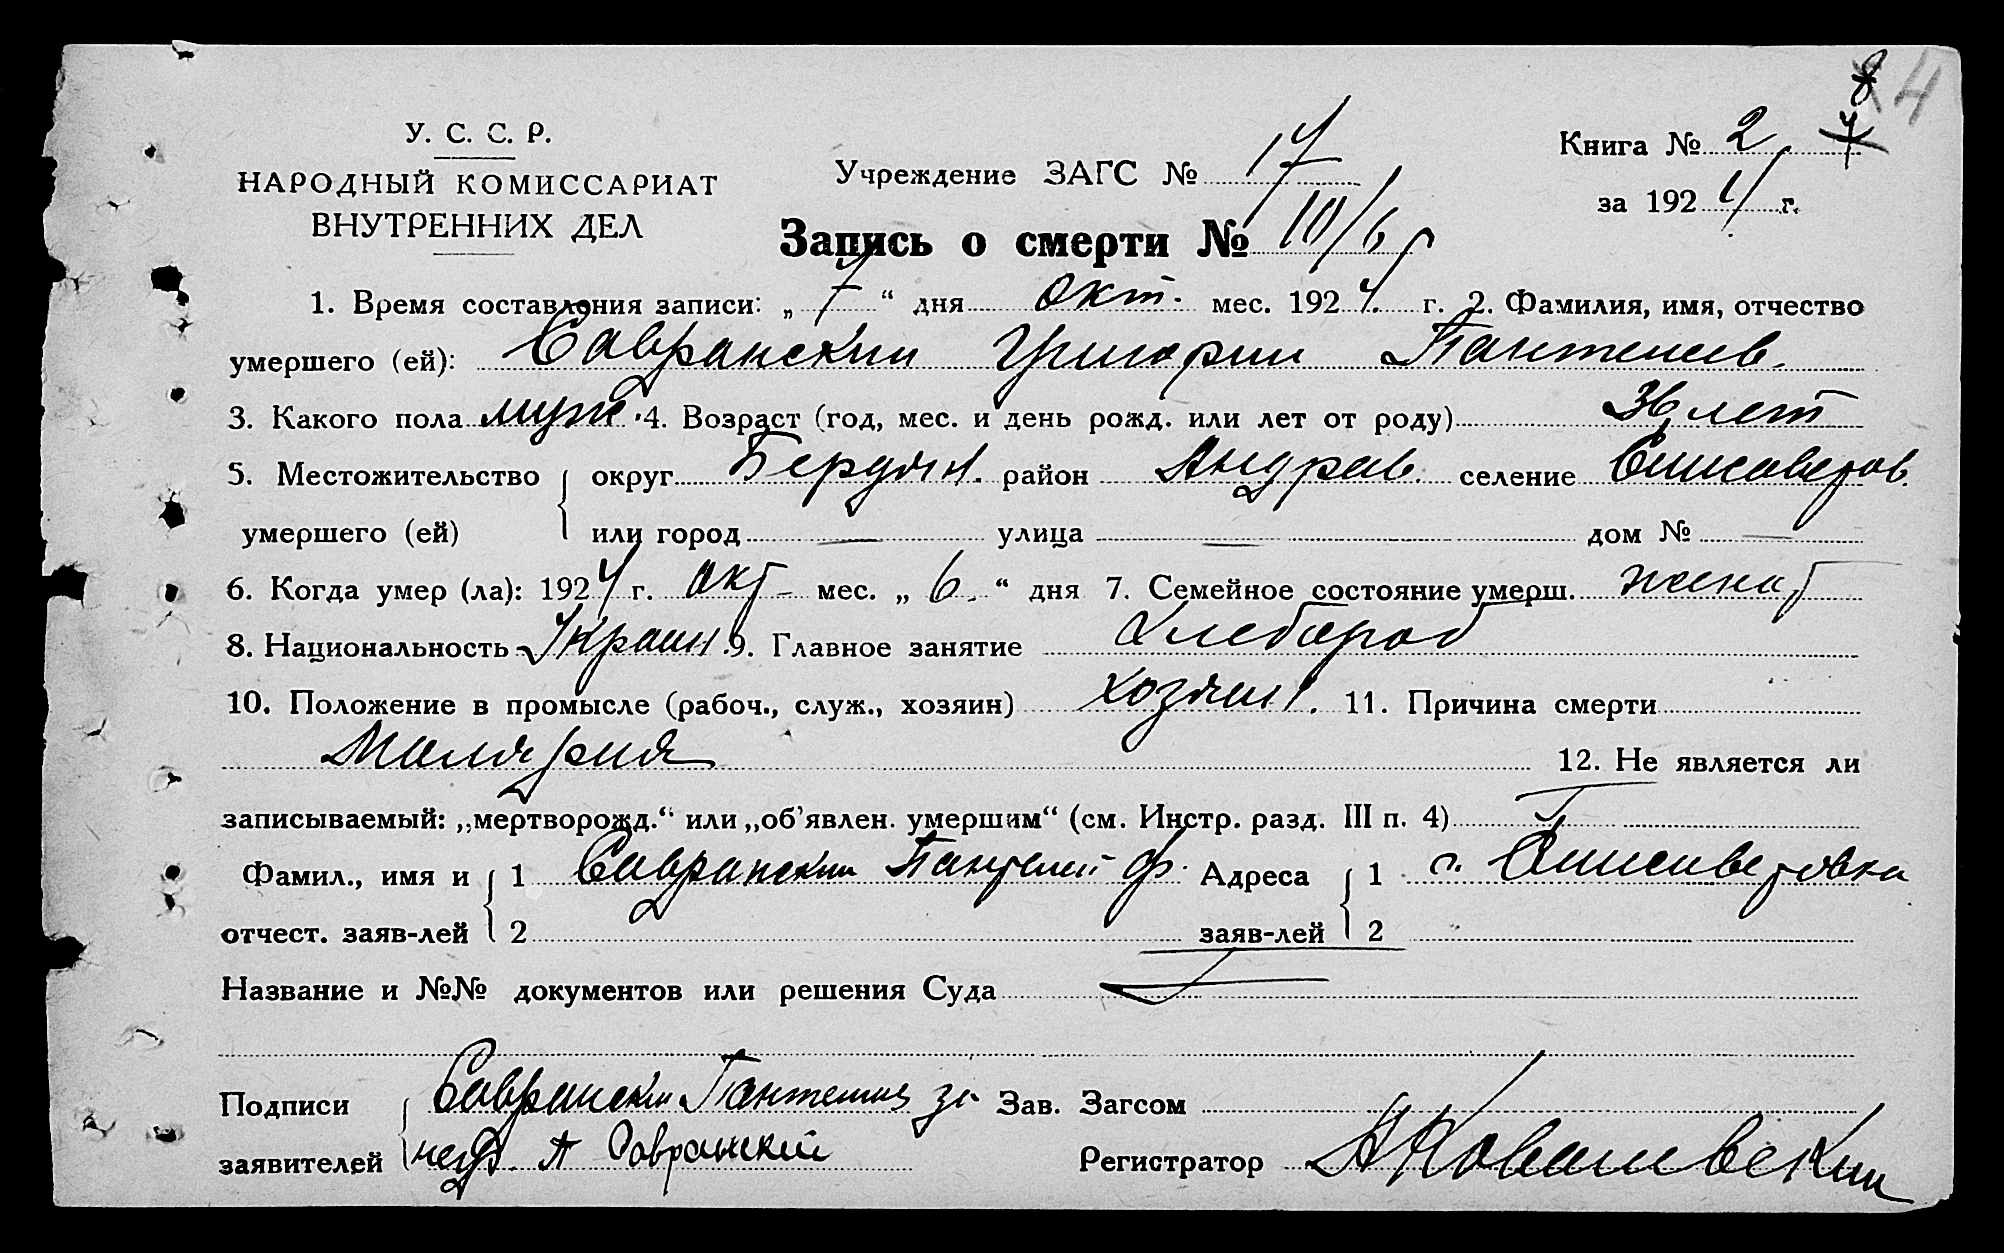 8 4
У. С. С. Р.
НАРОДНЫЙ КОМИССАРИАТ
ВНУТРЕННИХ ДЕЛ
Учреждение ЗАГС № 17
Книга № 2
за 1924 г.
Запись о смерти № 10/6
1. Время составления записи: „ 7 “ дня окт. мес. 1924 г. 2. Фамилия, имя, отчество
умершего (ей): Савранский Григорий Пантелеев.
3. Какого пола муж. 4. Возраст (год, мес. и день рожд. или лет от роду) 36 лет
5. Местожительство округ Бердян. район Андреев. селение Елисаветов.
умершего (ей) или город — улица — дом № —
6. Когда умер (ла): 1924 г. окт мес. „ 6. “ дня 7. Семейное состояние умерш. женат
8. Национальность Украин. 9. Главное занятие Хлебороб
10. Положение в промысле (рабоч., служ., хозяин) хозяин. 11. Причина смерти
Малярия 12. Не является ли
записываемый: „мертворожд.“ или „об'явлен. умершим“ (см. Инстр. разд. III п. 4)
Фамил., имя и 1 Савранский Пантелей Ф. Адреса 1 с. Елисаветовка
отчест. заяв-лей 2 заяв-лей 2
Название и №№ документов или решения Суда
Подписи Савранский Пантелей за Зав. Загсом
заявителей негр. А Савранский Регистратор